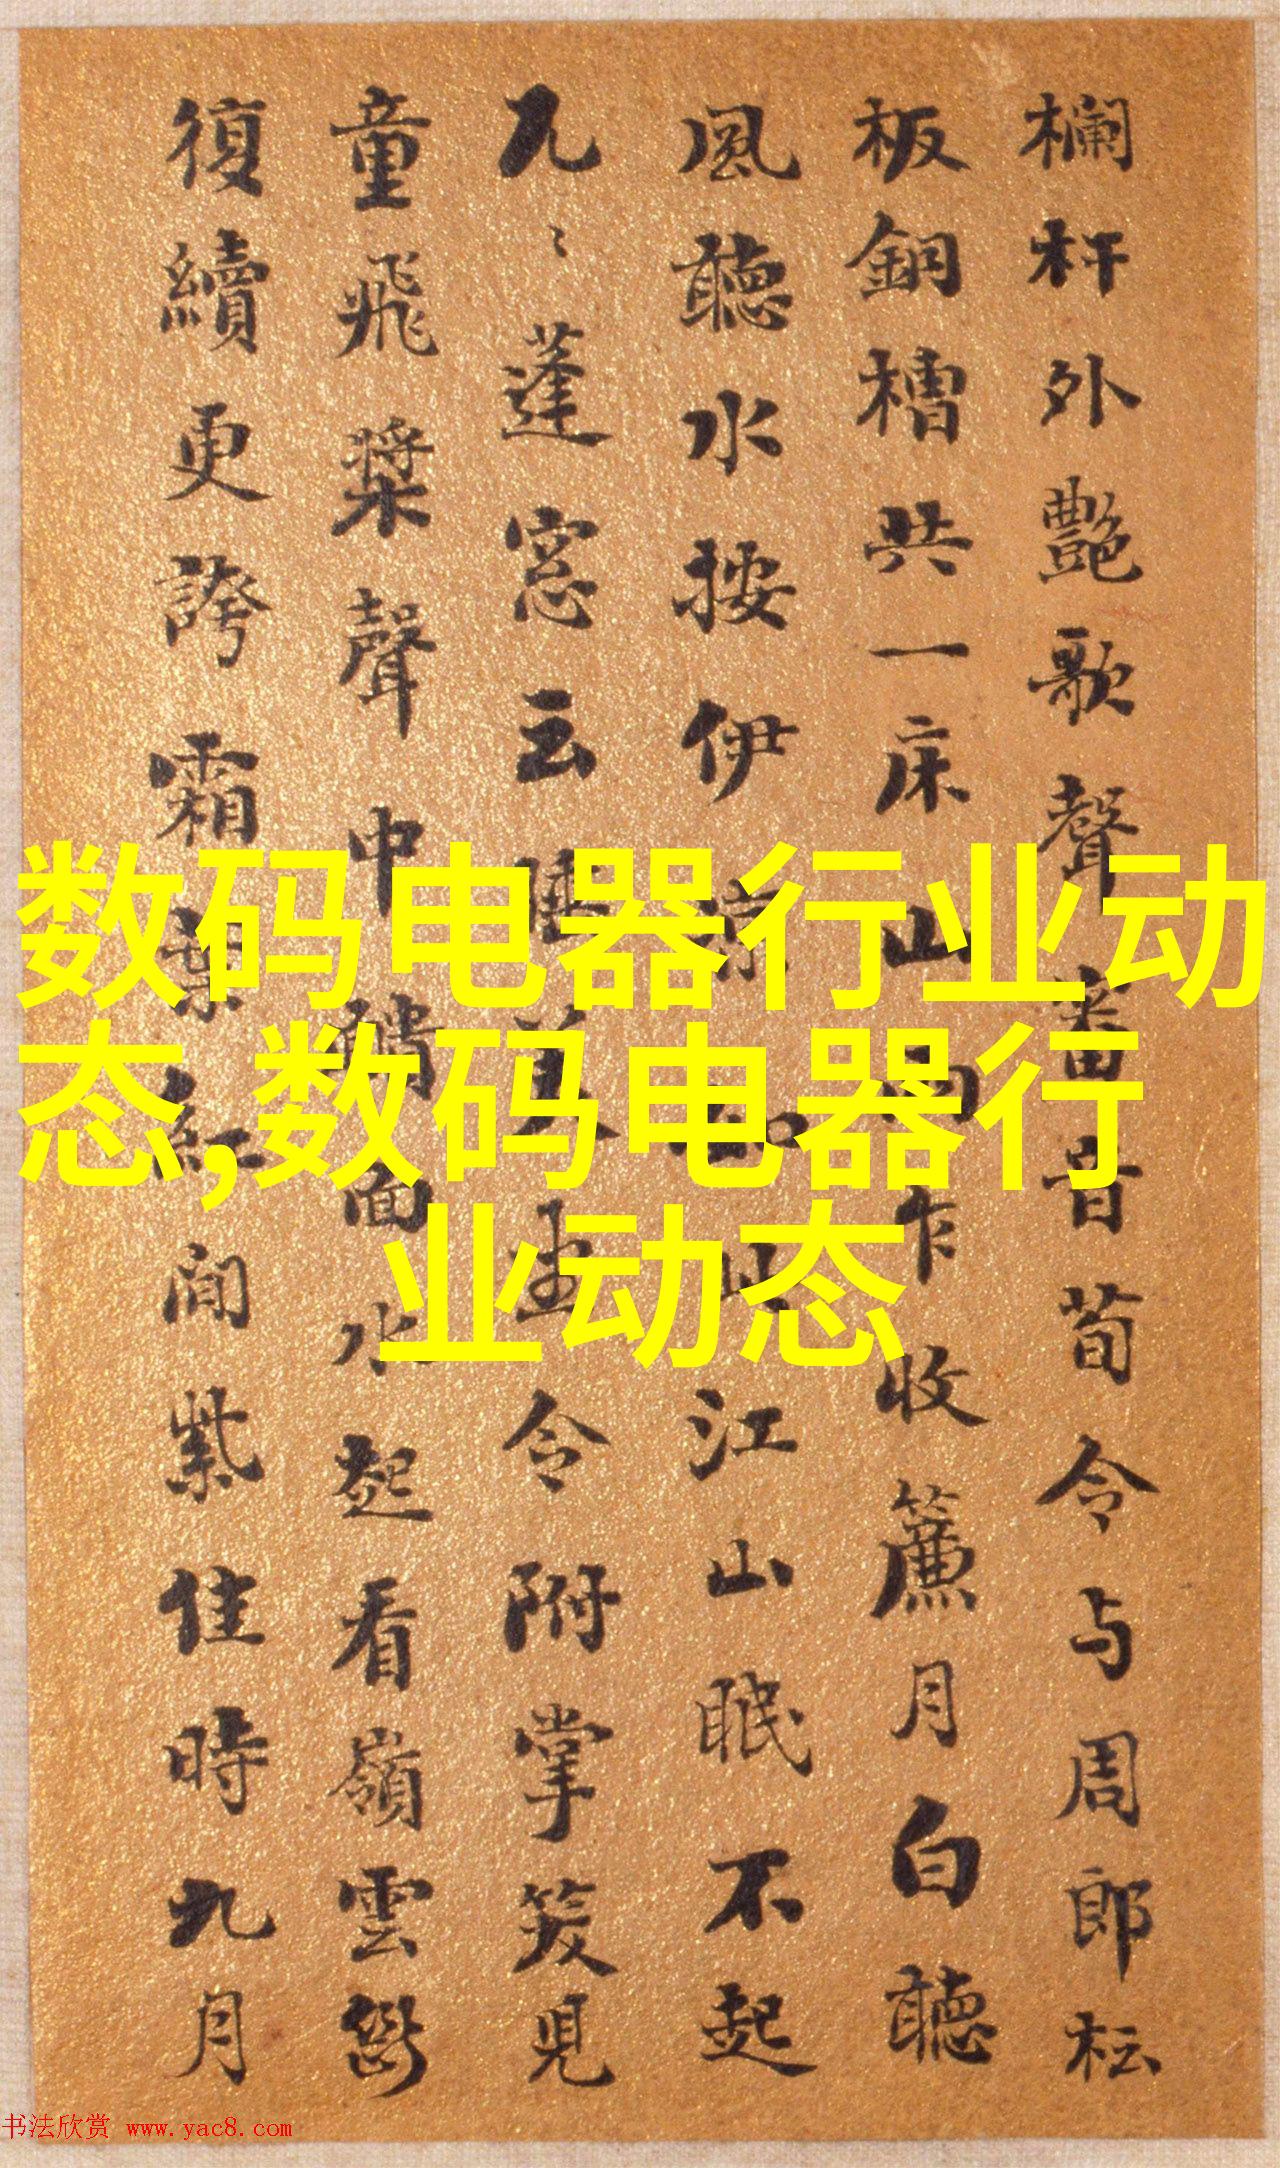 欄杆外艷歌聲音荀令与周郎枟
板銅槽共一床山雨乍收簾月白聽
風聽水按伊涼如此江山眠不起
兀〻蓬窓云睡美令附掌笑見
童飛槳聲中面水起看嶺雲
復續更誇霜葉紅間紫佳時九月
数码电器行业动
态,数码电器行
业动态
书法欣赏 www.yac8.com